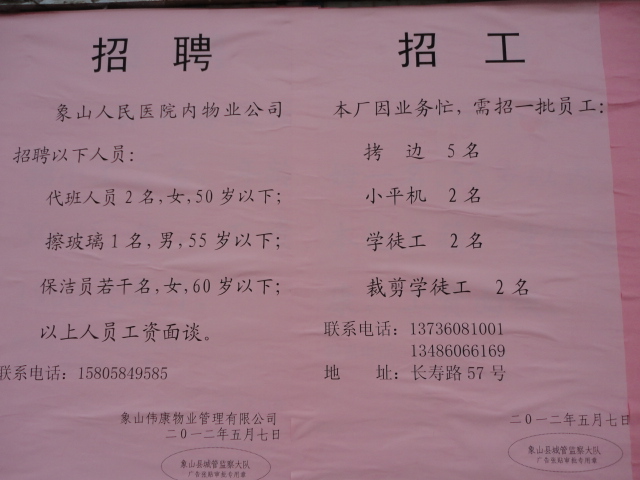 招 聘
象山人民医院内物业公司
招聘以下人员:
代班人员2名,女,50岁以下;
擦玻璃1名,男,55岁以下;
保洁员若干名,女,60岁以下;
以上人员工资面谈。
联系电话:15805849585
象山伟康物业管理有限公司
二○一二年五月七日
象山县城管监察大队
广告张贴审批专用章
招 工
本厂因业务忙,需招一批员工:
拷 边 5名
小平机 2名
学徒工 2名
裁剪学徒工 2名
联系电话:13736081001
13486066169
地 址:长寿路57号
二○一二年五月七日
象山县城管监察大队
广告张贴审批专用章